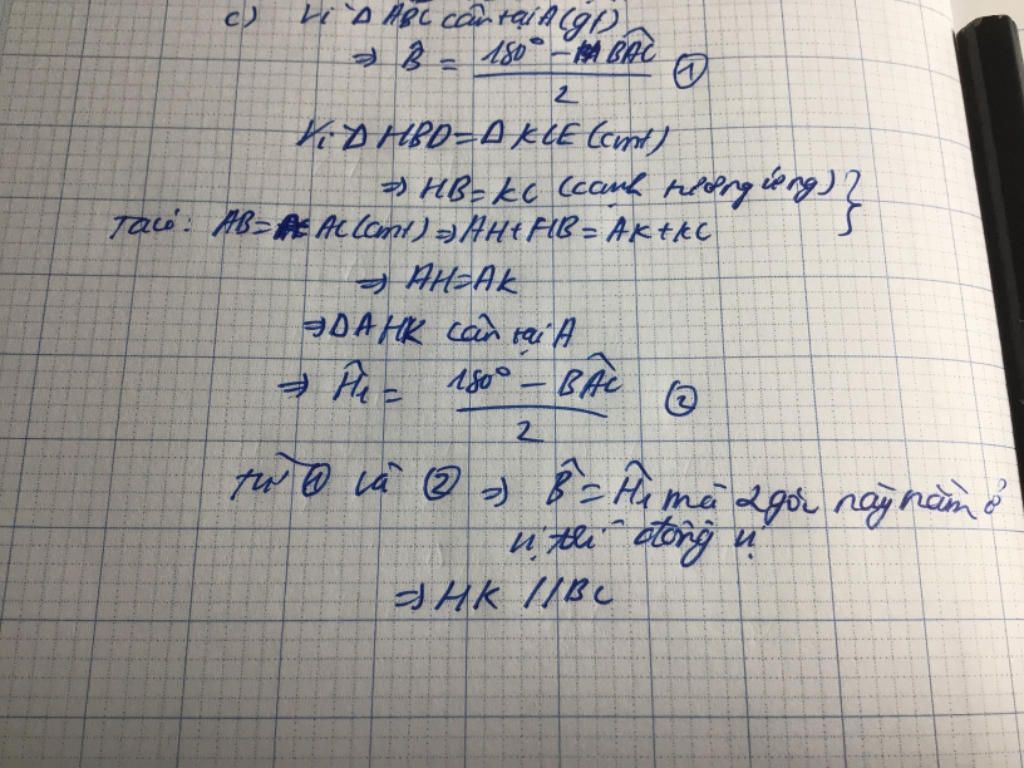 c) Vì Δ ABC cân tại A (gt)
⇒ B̂ = (180° - BÂC)/2 ①
Vì Δ HBD = Δ KCE (cmt)
⇒ HB = KC (cạnh tương ứng) }
Ta có: AB = AC (cmt) ⇒ AH + HB = AK + KC
⇒ AH = AK
⇒ Δ AHK cân tại A
⇒ Ĥ₁ = (180° - BÂC)/2 ②
Từ ① và ② ⇒ B̂ = Ĥ₁ mà 2 góc này nằm ở
vị trí đồng vị
⇒ HK // BC